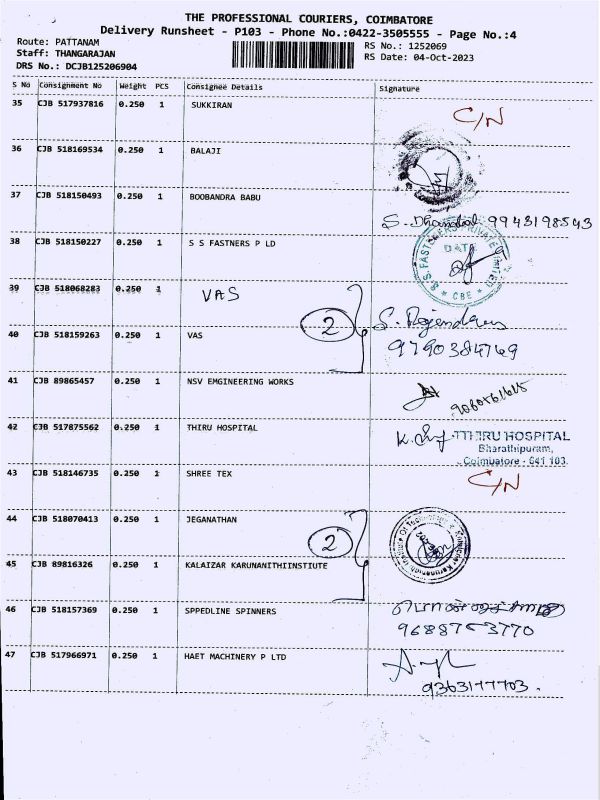 THE PROFESSIONAL COURIERS, COIMBATORE
Delivery Runsheet - P103 - Phone No.:0422-3505555 - Page No.:4
Route: PATTANAM
RS No.: 1252069
Staff: THANGARAJAN
RS Date: 04-Oct-2023
DRS No.: DCJB125206904
S No Consignment No Weight PCS Consignee Details Signature
35 CJB 517937816 0.250 1 SUKKIRAN C/N
36 CJB 518169534 0.250 1 BALAJI
37 CJB 518150493 0.250 1 BOOBANDRA BABU
9943198543
38 CJB 518150227 0.250 1 S S FASTNERS P LD
DATE
CBE
39 CJB 518068283 0.250 1 VAS
2
40 CJB 518159263 0.250 1 VAS
9790384769
41 CJB 89865457 0.250 1 NSV EMGINEERING WORKS
42 CJB 517875562 0.250 1 THIRU HOSPITAL THIRU HOSPITAL
Bharathipuram,
Coimbatore - 641 103.
43 CJB 518146735 0.250 1 SHREE TEX C/N
44 CJB 518070413 0.250 1 JEGANATHAN
2
45 CJB 89816326 0.250 1 KALAIZAR KARUNANITHIINSTIUTE
46 CJB 518157369 0.250 1 SPPEDLINE SPINNERS
9688753770
47 CJB 517966971 0.250 1 HAET MACHINERY P LTD
9363177703.